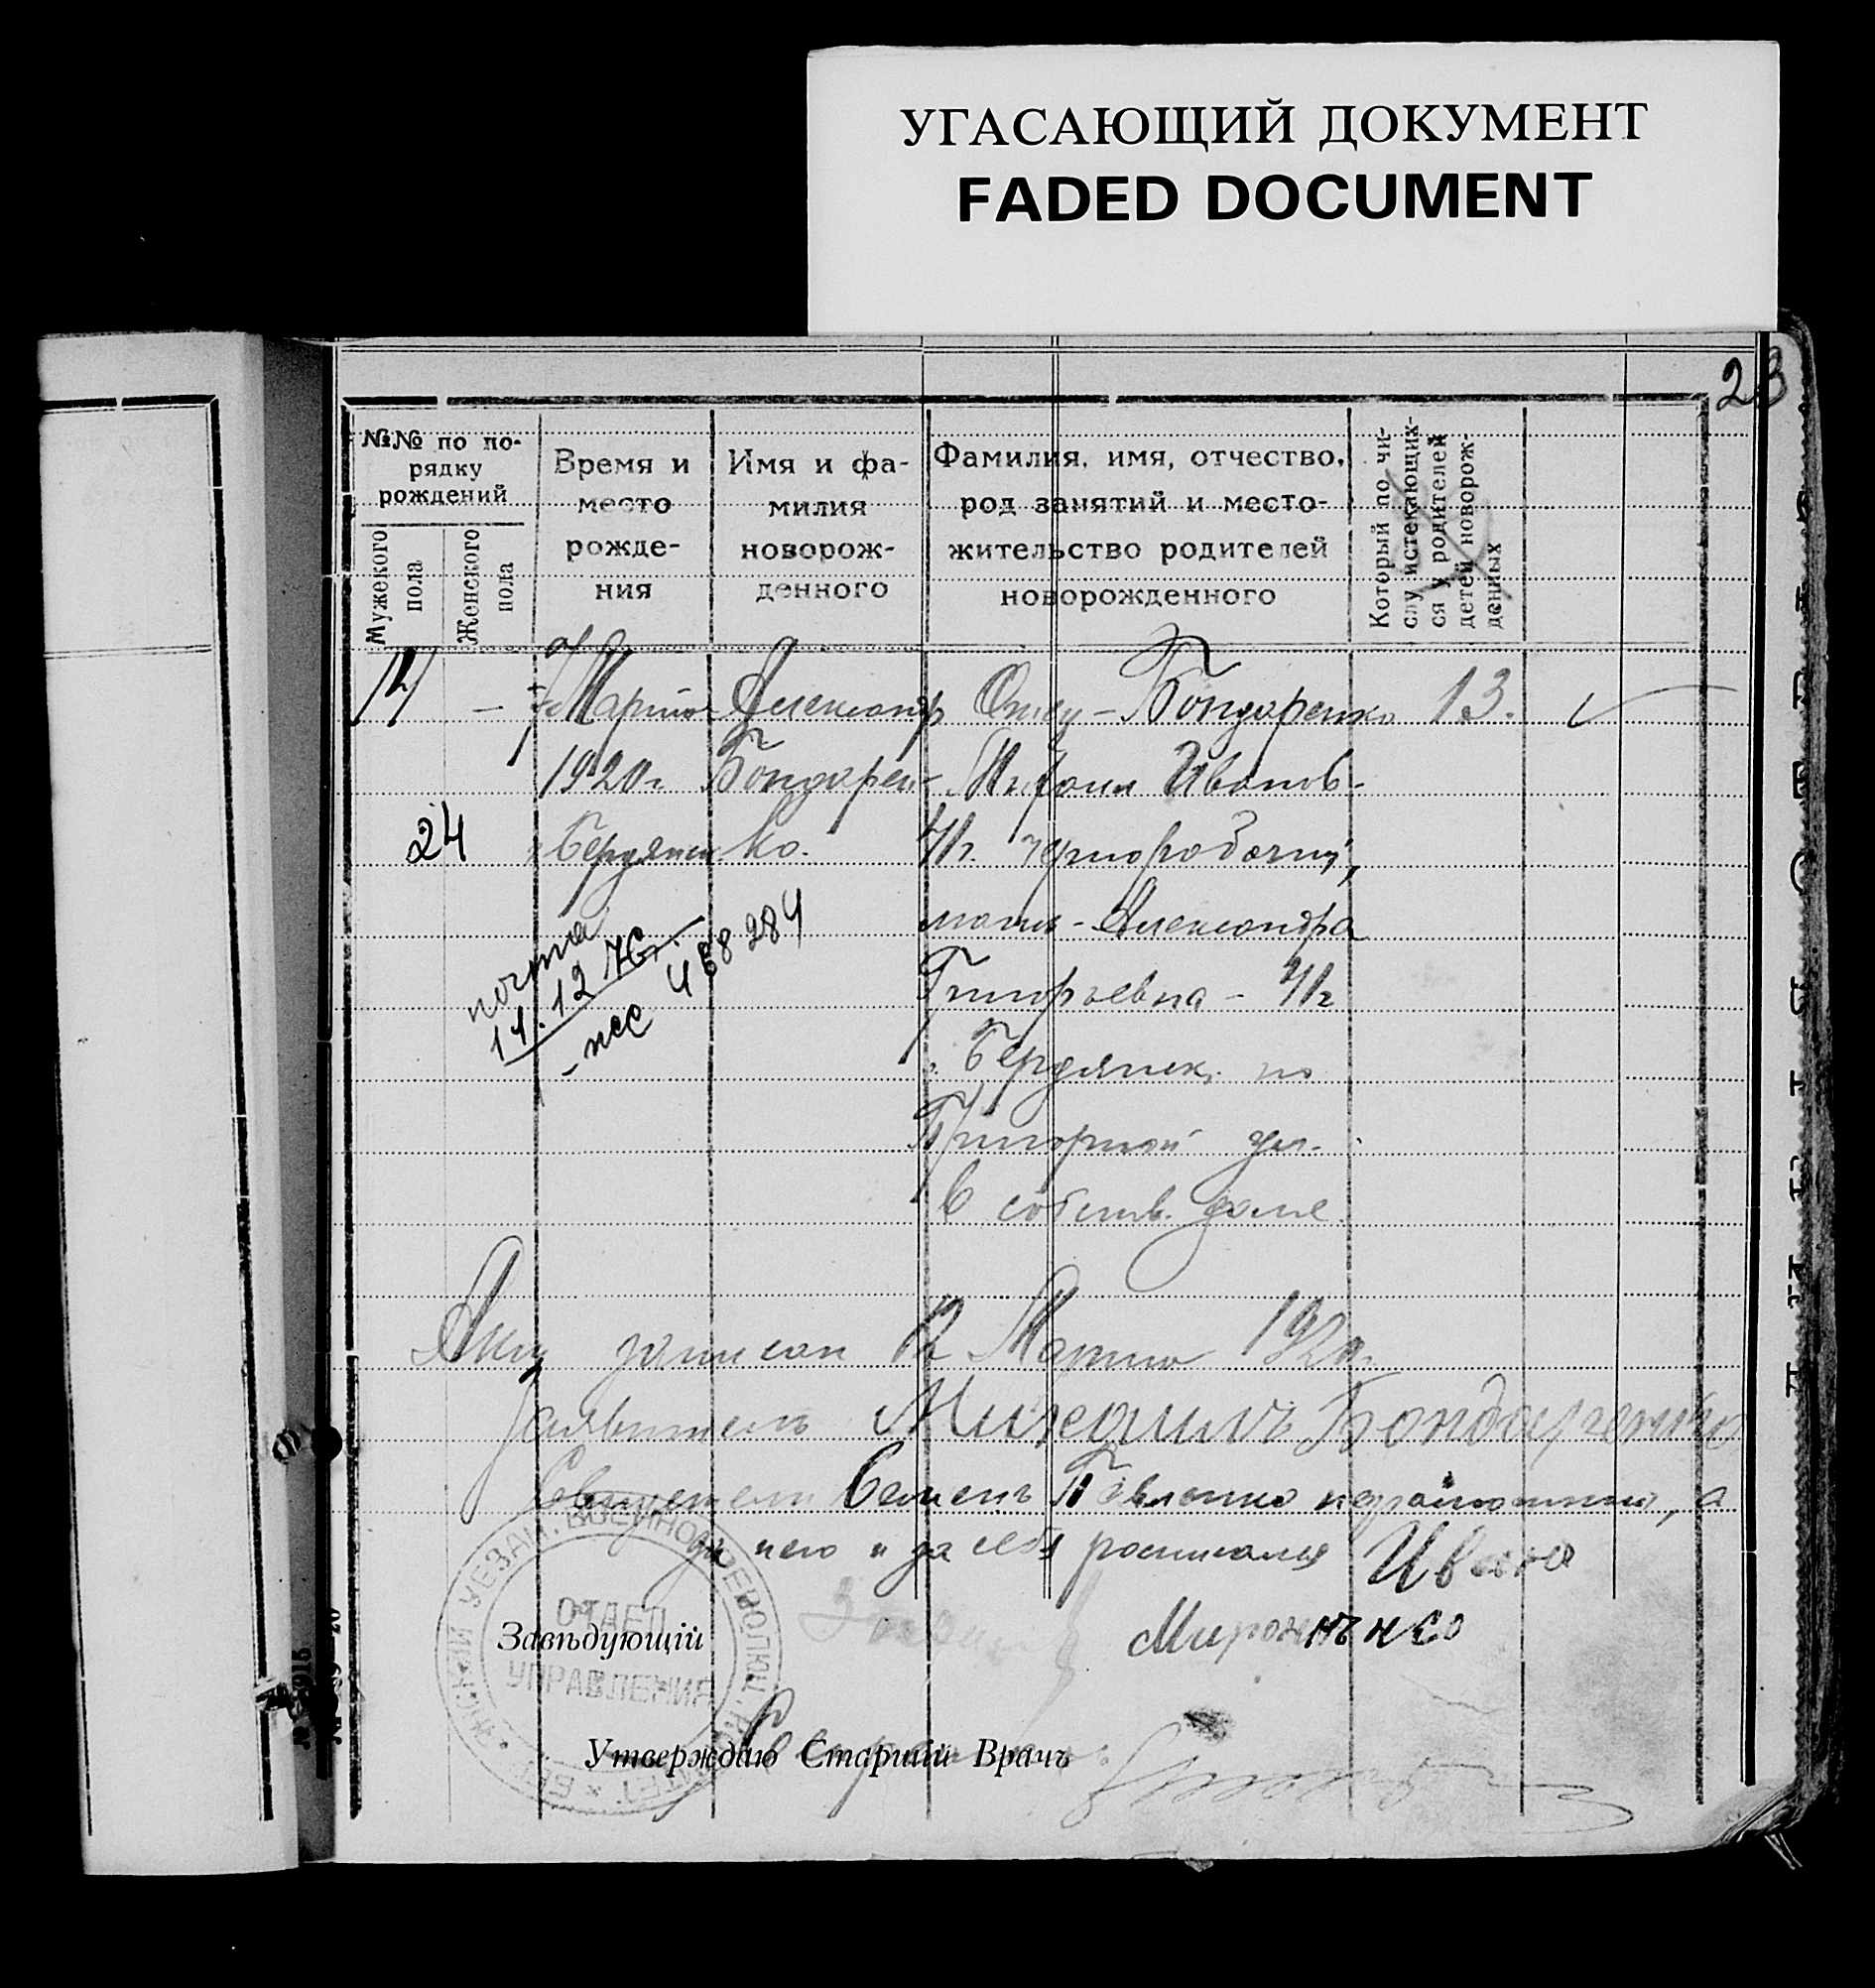 УГАСАЮЩИЙ ДОКУМЕНТ
FADED DOCUMENT
23
№№ по по-
рядку
рождений
Мужского
пола
Женского
пола
Время и
место
рожде-
ния
Имя и фа-
милия
новорож-
денного
Фамилия, имя, отчество,
род занятий и место-
жительство родителей
новорожденного
Который по чи-
слу истекающих-
ся у родителей
детей новорож-
денных
14 —
24
7 Марта
1920 г.
г. Бердянск
Александр
Бондарен-
ко.
Отец – Бондаренко
Иванов-
41 г. чернорабочий,
мать – Александра
Григорьевна – 41 г
г. Бердянск, по
Нагорной ул.
в собств. доме.
13.
почта
14.12 76г.
– пас 468 284
Акт записан 12 Марта 1920 г.
Заявитель Бондаренко
Свидетели Семен Павленко неграмотный, а
за него и за себя росписался Иван
Мироненко
Завѣдующій
Утверждаю Старшій Врачъ
УЕЗДН. ВОЕННО-РЕВОЛЮЦ.
ОТДЕЛ
УПРАВЛЕНИЯ